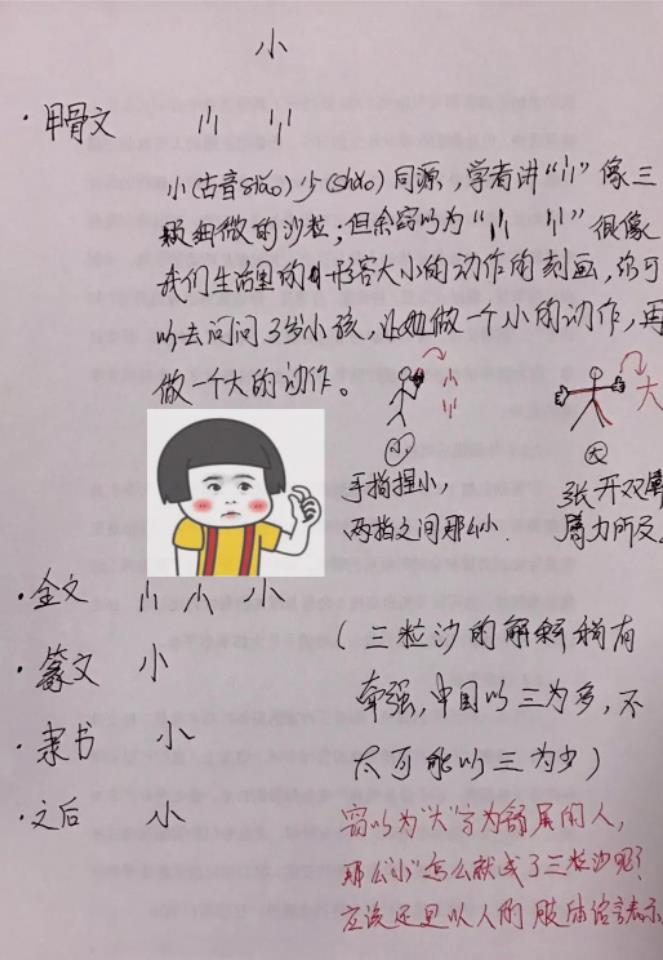 小
·甲骨文
小(古音siǎo)少(shǎo)同源，学者讲“小”像三
颗细微的沙粒；但余窃以为“小 小”很像
我们生活里的形容大小的动作的刻画，你可
以去问问3岁小孩，让她做一个小的动作，再
做一个大的动作。
小
大
小
大
手指捏小，
两指之间那么小.
张开双臂
臂力所及。
·金文 小 小 小
·篆文 小
·隶书 小
·之后 小
(三粒沙的解释稍有
牵强，中国以三为多，不
太可能以三为少)
窃以为“大”字为舒展的人，
那么“小”怎么就成了三粒沙呢？
应该还是以人的肢体语言表示。